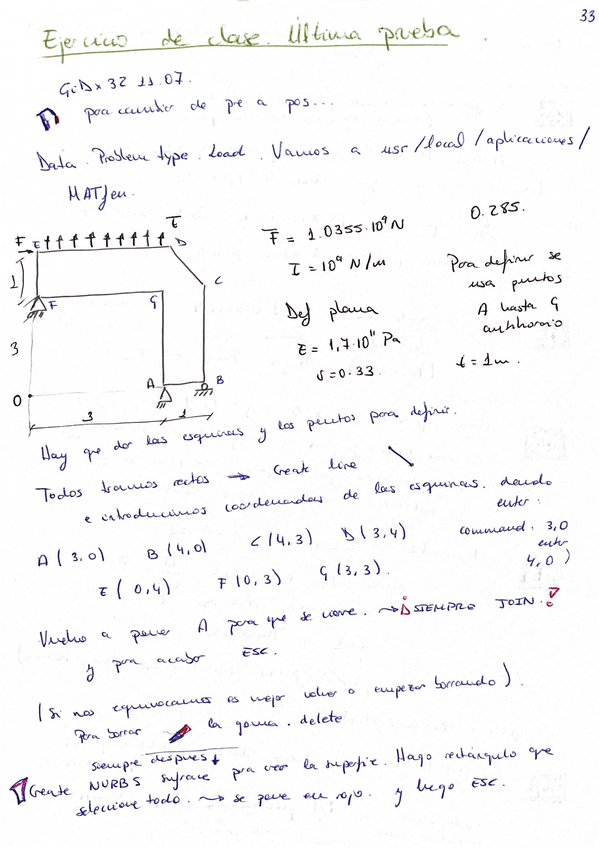 33
Ejercicio de clase. Última prueba.
GiD x32 11.07.
para cambiar de pre a pos...
Data. Problem type. Load. Vamos a usr/local/aplicaciones/
MATfem.
F E τ D
1 F G C
3 A B
O
3 1
F = 1.0355·10⁹ N
I = 10⁹ N/m
Def plana
E = 1,7·10¹¹ Pa
ν = 0.33.
0.285.
Para definir se
usa puntos
A hasta G
antihorario
t = 1m.
Hay que dar las esquinas y los puntos para definir.
Todos tramos rectos → Create line
e introducimos coordenadas de las esquinas. dando
enter:
A (3,0) B (4,0) C (4,3) D (3,4) command. 3,0
enter
E (0,4) F (0,3) G (3,3). 4,0)
Vuelvo a poner A para que se cierre. → ¡SIEMPRE JOIN!
y para acabar ESC.
(Si nos equivocamos es mejor volver a empezar borrando).
Para borrar la goma. delete
siempre después ↓
Create NURBS surface para crear la superficie. Hago rectángulo que
seleccione todo. → se pone en rojo. y luego ESC.